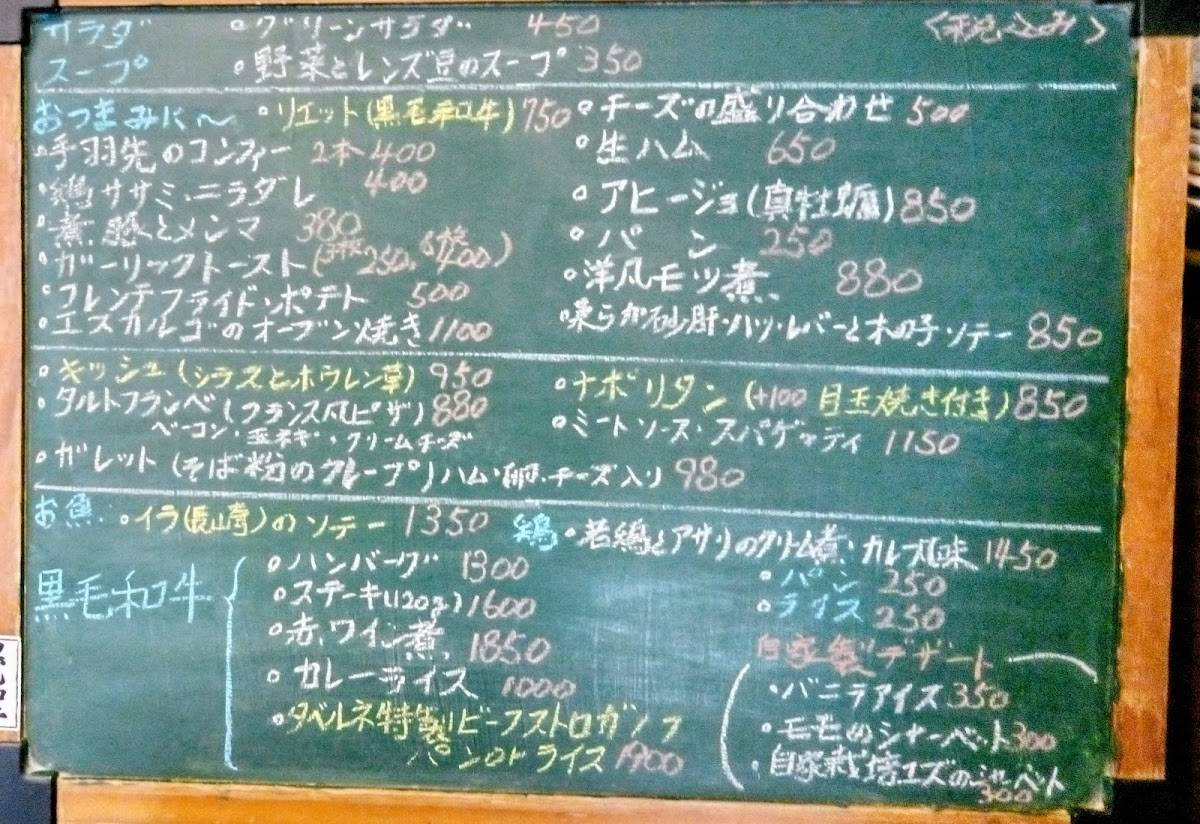 サラダ ・グリーンサラダ 450 〈税込み〉
スープ ・野菜とレンズ豆のスープ 350
おつまみに〜 ・リエット(黒毛和牛) 750
・手羽先のコンフィー 2本 400
・鶏ササミ・ニラダレ 400
・煮豚とメンマ 380
・ガーリックトースト( 250, 6枚 400)
・フレンチフライド・ポテト 500
・エスカルゴのオーブン焼き 1100
・チーズの盛り合わせ 500
・生ハム 650
・アヒージョ(真牡蠣) 850
・パン 250
・洋風モツ煮 880
・柔らか砂肝・ハツ・レバーと木の子ソテー 850
・キッシュ(シラスとホウレン草) 950
・タルトフランベ(フランス風ピザ) 880
ベーコン・玉ネギ・クリームチーズ
・ガレット(そば粉のクレープ)ハム・卵・チーズ入り 980
・ナポリタン(+100 目玉焼き付き) 850
・ミートソース・スパゲッティ 1150
お魚 ・イラ(長崎)のソテー 1350
鶏 ・若鶏とアサリのクリーム煮・カレー風味 1450
黒毛和牛
・ハンバーグ 1300
・ステーキ(120g) 1600
・赤ワイン煮 1850
・カレーライス 1000
・タベルネ特製ビーフストロガノフ
パンorライス 1900
・パン 250
・ライス 250
自家製デザート
・バニラアイス 350
・モモのシャーベット 300
・自家栽培ユズのシャーベット
300